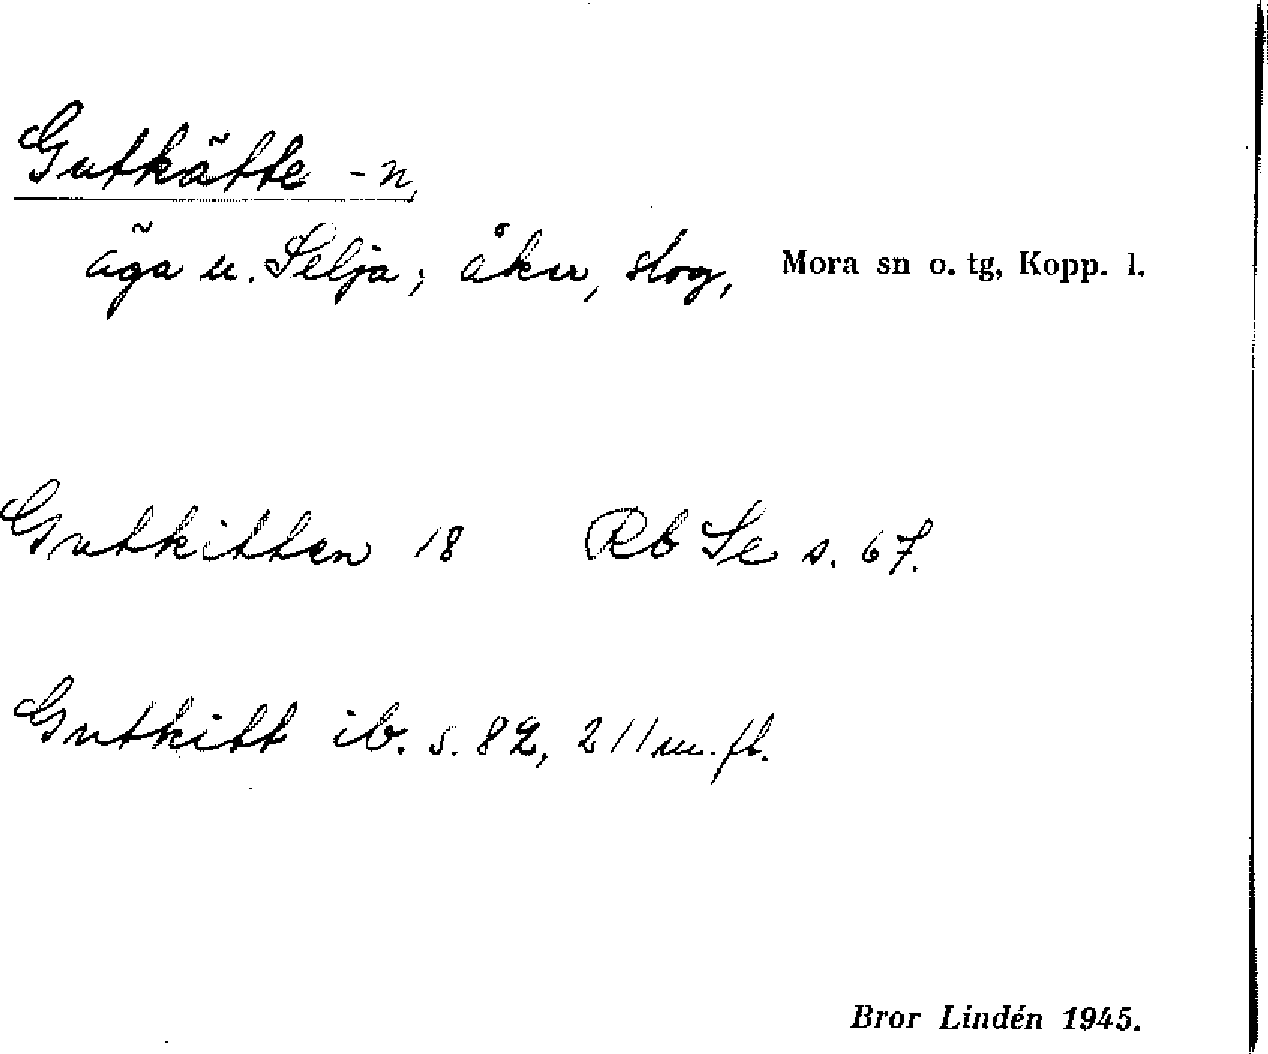 Gutkätte -n,
äga u. Selja; åker, slog, Mora sn o. tg, Kopp. l.
Gutkitten 18 Rb Se s. 67.
Gutkitt ib. s. 82, 211 m. fl.
Bror Lindén 1945.